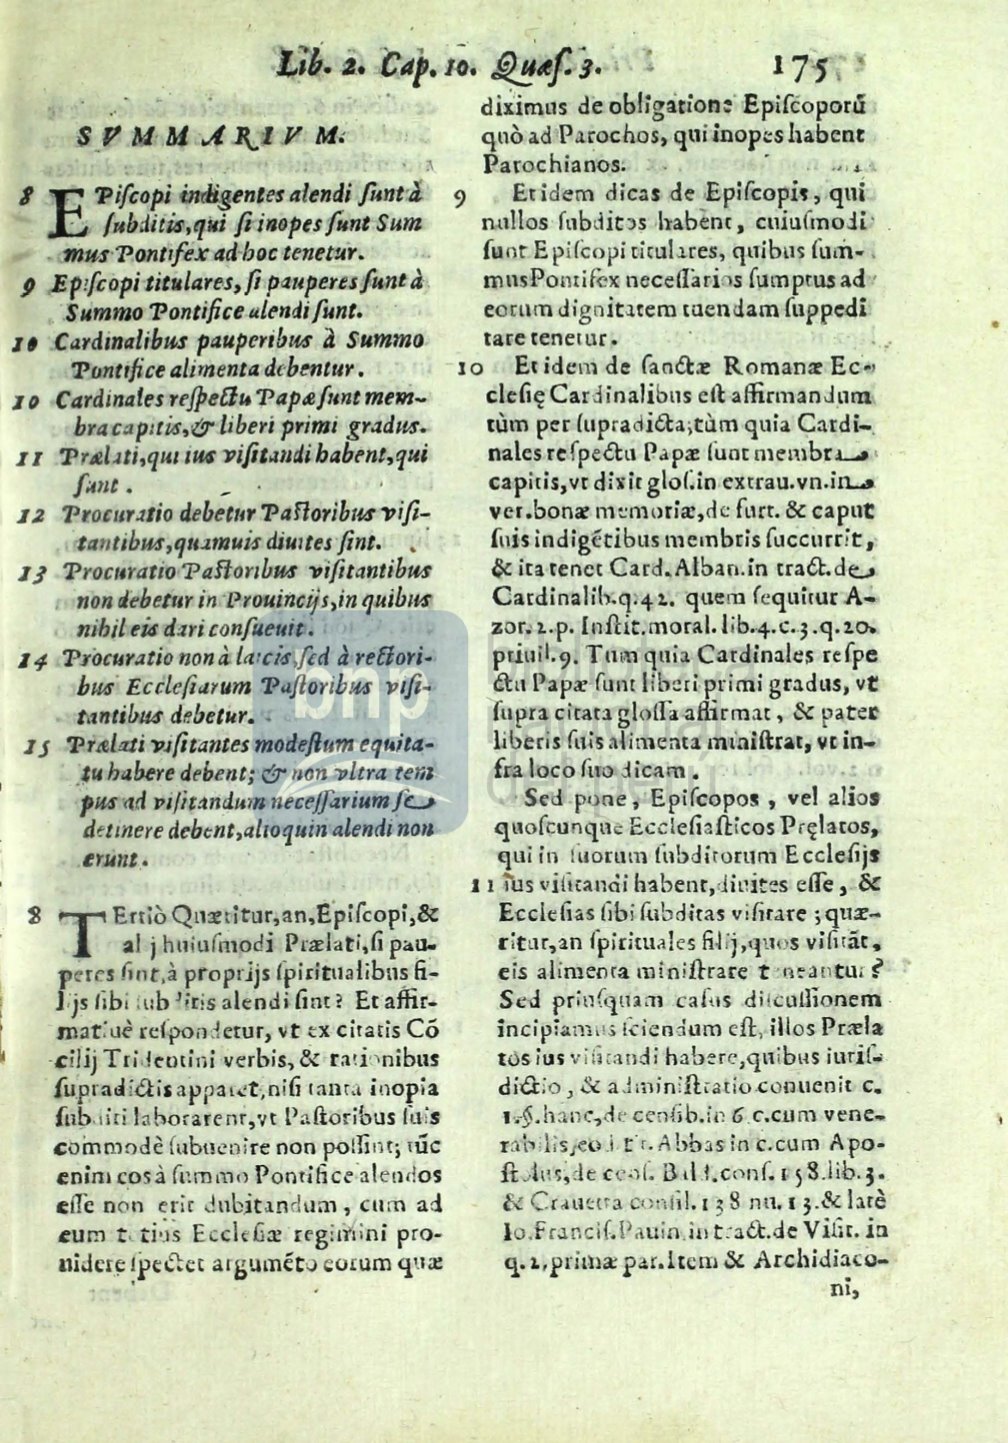 Lib. 2. Cap. 10. Quæſ. 3. 175
SVMMARIVM.
8 EPiſcopi indigentes alendi ſunt à
ſubditis, qui ſi inopes ſunt Sum
mus Pontifex ad hoc tenetur.
9 Epiſcopi titulares, ſi pauperes ſunt à
Summo Pontifice alendi ſunt.
10 Cardinalibus pauperibus à Summo
Pontifice alimenta debentur.
10 Cardinales reſpectu Papæ ſunt mem-
bra capitis, & liberi primi gradus.
11 Prælati, qui ius viſitandi habent, qui
ſunt.
12 Procuratio debetur Paſtoribus viſi-
tantibus, quamuis diuites ſint.
13 Procuratio Paſtoribus viſitantibus
non debetur in Prouincijs, in quibus
nihil eis dari conſueuit.
14 Procuratio non à laicis, ſed à rectori-
bus Eccleſiarum Paſtoribus viſi-
tantibus debetur.
15 Prælati viſitantes modeſtum equita-
tu habere debent; & non vltra tem
pus ad viſitandum neceſſarium ſe
detinere debent, alioquin alendi non
erunt.
8 TErtiò Quæritur, an, Epiſcopi, &
alij huiuſmodi Prælati, ſi pau-
peres ſint, à proprijs ſpiritualibus fi-
lijs ſibi ſubditis alendi ſint? Et affir-
matiuè reſpondetur, vt ex citatis Cõ
cilij Tridentini verbis, & rationibus
ſupradictis apparet, niſi tanta inopia
ſubditi laborarent, vt Paſtoribus ſuis
commodè ſubuenire non poſſint; tũc
enim eos à ſummo Pontifice alendos
eſſe non erit dubitandum, cum ad
eum totius Eccleſiæ regimini pro-
uidere ſpectet argumẽto eorum quæ
diximus de obligatione Epiſcoporũ
quò ad Parochos, qui inopes habent
Parochianos.
9 Et idem dicas de Epiſcopis, qui
nullos ſubditos habent, cuiuſmodi
ſunt Epiſcopi titulares, quibus ſum-
mus Pontifex neceſſarios ſumptus ad
eorum dignitatem tuendam ſuppedi
tare tenetur.
10 Et idem de ſanctæ Romanæ Ec-
cleſię Cardinalibus eſt affirmandum
tùm per ſupradicta, tùm quia Cardi-
nales reſpectu Papæ ſunt membra
capitis, vt dixit gloſ. in extrau. vn. in
ver. bonæ memoriæ, de furt. & caput
ſuis indigẽtibus membris ſuccurrit,
& ita tenet Card. Alban. in tract. de
Cardinalib. q. 42. quem ſequitur A-
zor. 2. p. Inſtit. moral. lib. 4. c. 3. q. 20.
priuil. 9. Tum quia Cardinales reſpe
ctu Papæ ſunt liberi primi gradus, vt
ſupra citata gloſſa affirmat, & pater
liberis ſuis alimenta miniſtrat, vt in-
fra loco ſuo dicam.
Sed pone, Epiſcopos, vel alios
quoſcunque Eccleſiaſticos Pręlatos,
qui in ſuorum ſubditorum Eccleſijs
11 ius viſitandi habent, diuites eſſe, &
Eccleſias ſibi ſubditas viſitare; quæ-
ritur, an ſpirituales filij, quos viſitãt,
eis alimenta miniſtrare teneantur?
Sed priuſquam caſus diſcuſſionem
incipiamus ſciendum eſt, illos Præla
tos ius viſitandi habere, quibus iuriſ-
dictio, & adminiſtratio conuenit c.
1. §. hanc, de cenſib. in 6 c. cum vene-
rabilis, eo. tit. Abbas in c. cum Apo-
ſtolus, de cenſ. Bald. conſ. 158. lib. 3.
& Crauetta conſil. 138 nu. 13. & latè
Io. Franciſ. Pauin. in tract. de Viſit. in
q. 2. primæ par. Item & Archidiaco-
ni,
bnp